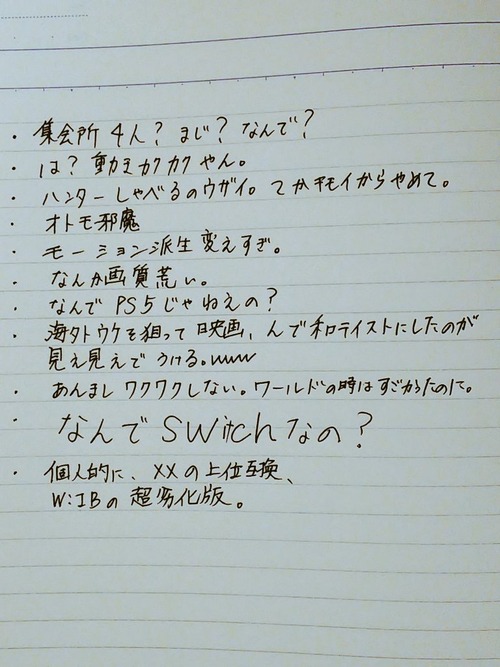 ・集会所 4人? まじ? なんで?
・は? 動きカクカクやん。
・ハンターしゃべるのウザイ。てかキモイからやめて。
・オトモ邪魔
・モーション派生変えすぎ。
・なんか画質荒い。
・なんで PS5じゃねえの?
・海外ウケを狙って映画、んで和テイストにしたのが
見え見えでうける。www
・あんましワクワクしない。ワールドの時はすごかったのに。
・なんでSwitchなの?
・個人的に、XXの上位互換、
W:IBの超劣化版。